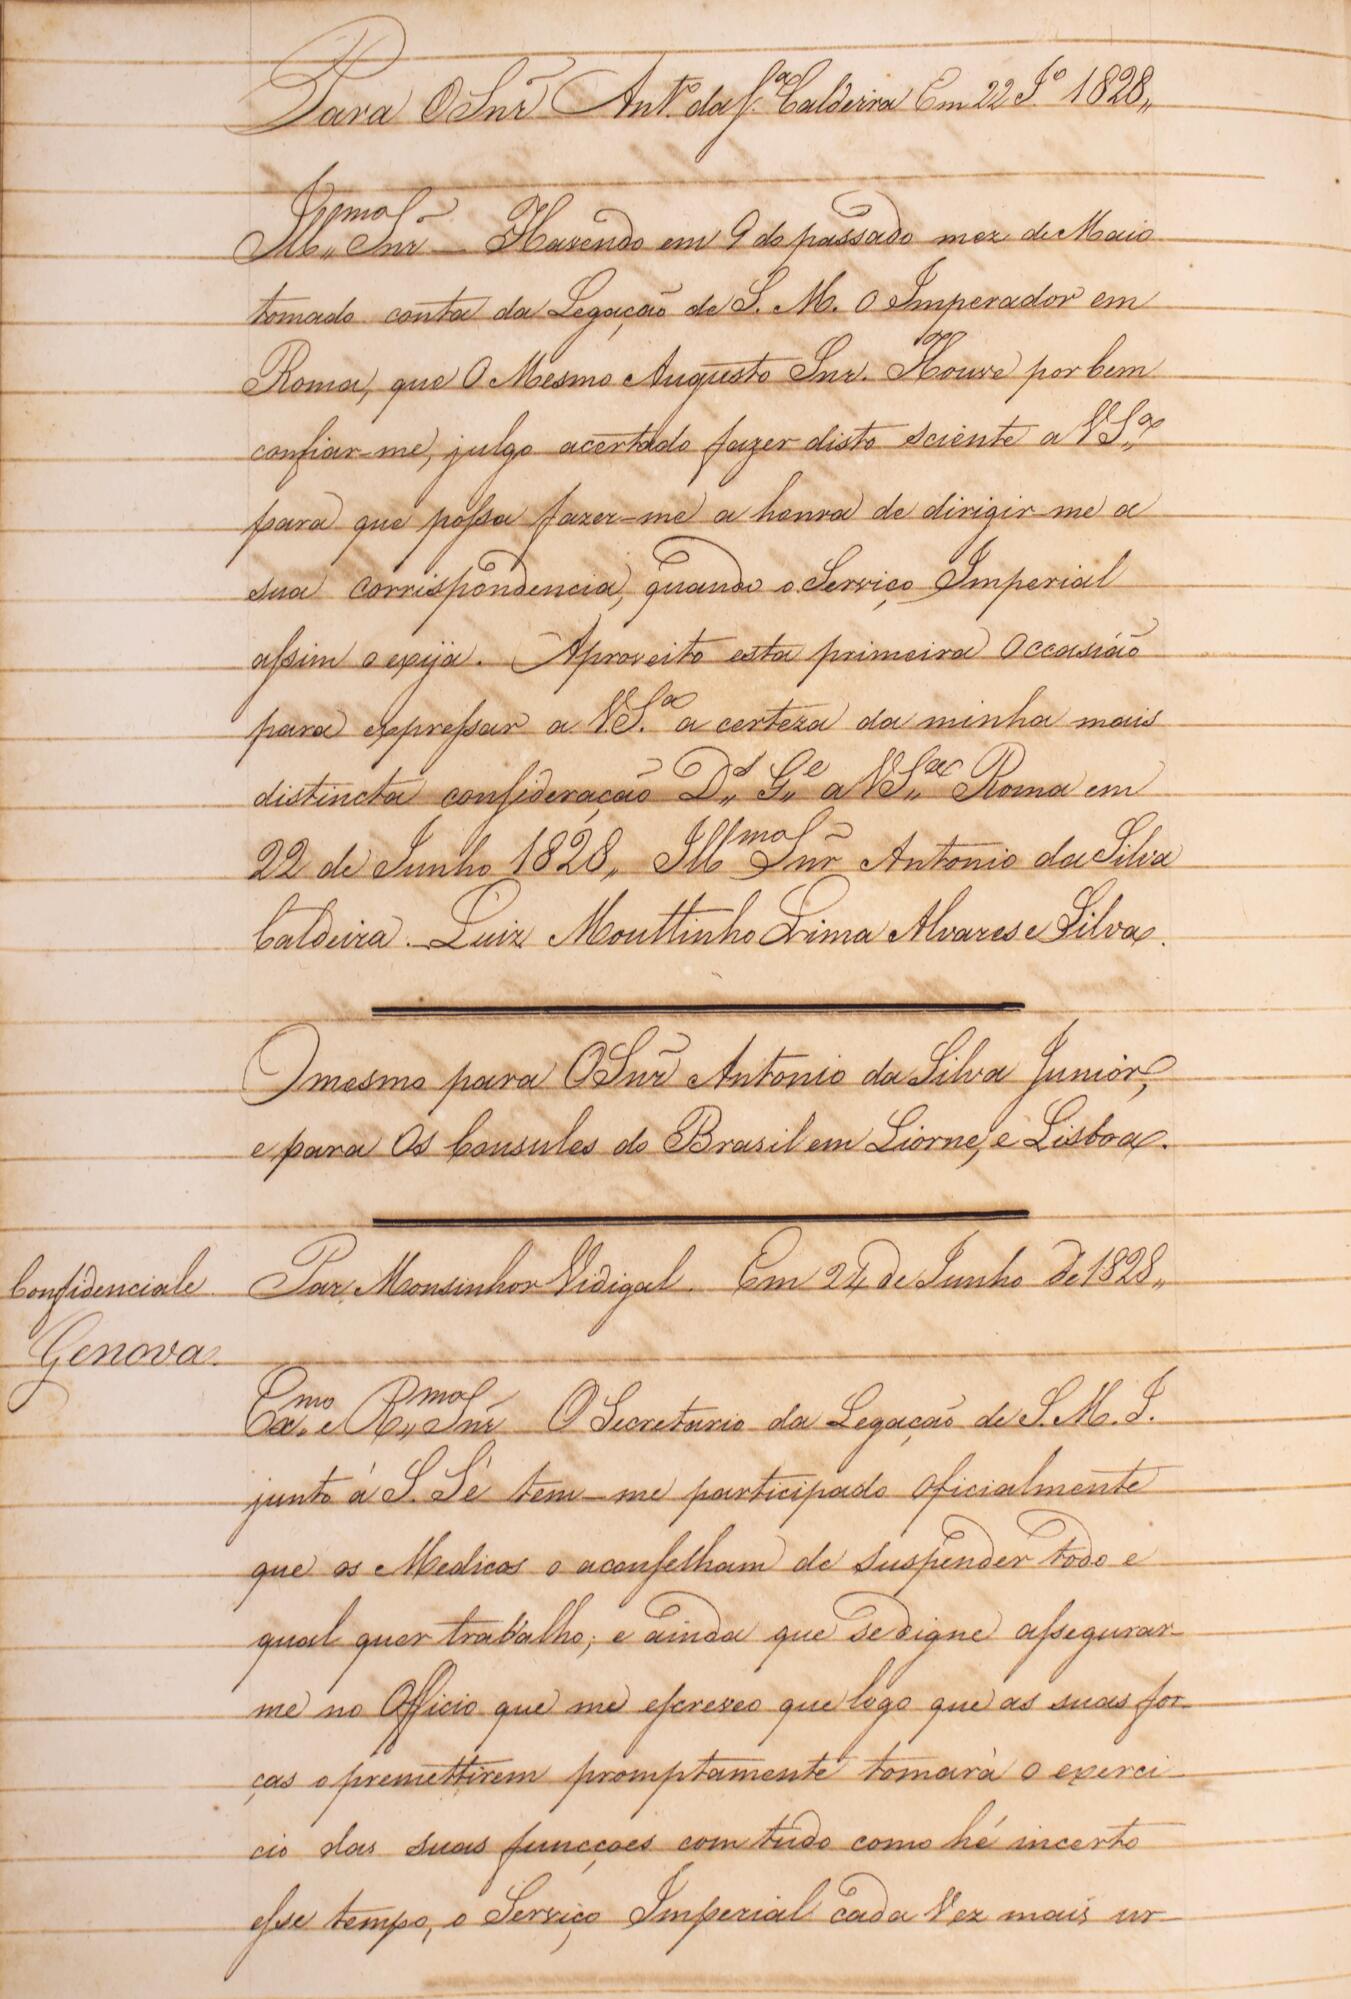 Para O Snr̃ Ant.º da S.ª Caldeira Em 22 J.º 1828,,
Ill,,mo Snr̃ — Havendo em 9 do passado mez de Maio
tomado conta da Legação de S. M. O Imperador em
Roma, que O Mesmo Augusto Snr. Houve por bem
confiar-me, julgo acertado fazer disto sciente a V S,,ª
para que possa fazer-me a honra de dirigir-me a
sua corrispondencia, quando o Serviço Imperial
assim o exija. Aproveito esta primeira occasião
para expressar a V.S.ª a certeza da minha mais
distincta consideração D,,s G,,e a V S,,ª Roma em
22 de Junho 1828,, Ill mo Snr̃ Antonio da Silva
Caldeira. — Luiz Mouttinho Lima Alvares e Silva.
O mesmo para O Snr̃ Antonio da Silva Junior,
e para Os Consules do Brasil em Liorne, e Lisboa.
Confidenciale
Genova.
Par. Monsinhor Vidigal. Em 24 de Junho de 1828,,
Ex.mo e R,,mo Snr̃ O Secretario da Legação de S. M. I.
junto á S. Sé tem-me participado oficialmente
que os Medicos o aconselham de suspender todo e
qual quer trabalho; e ainda que se digne assegurar-
me no Officio que me escreveo que logo que as suas for-
ças o premettirem promptamente tomará o exerci-
cio das suas funcçoes com tudo como hé incerto
esse tempo, o Serviço Imperial cada Vez mais ur-